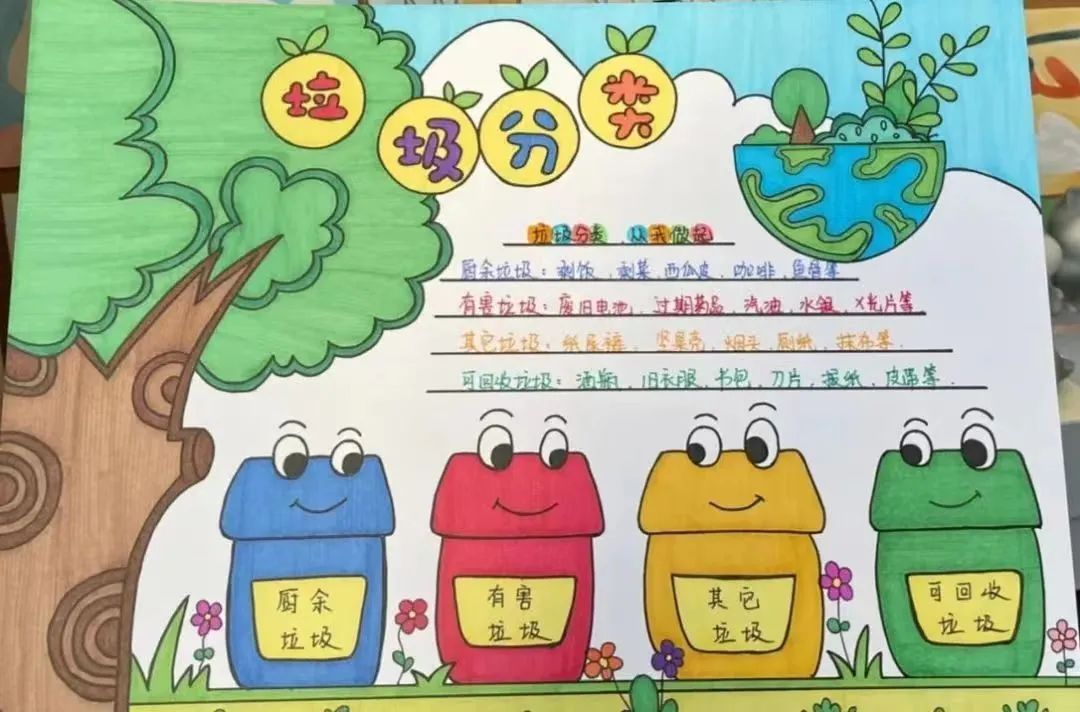 垃圾分类
垃圾分类，从我做起
厨余垃圾：剩饭、剩菜、西瓜皮、咖啡、鱼骨等
有害垃圾：废旧电池、过期药品、汽油、水银、X光片等
其它垃圾：纸尿裤、坚果壳、烟头、厕纸、抹布等.
可回收垃圾：酒瓶、旧衣服、书包、刀片、报纸、皮带等.
厨余
垃圾
有害
垃圾
其它
垃圾
可回收
垃圾